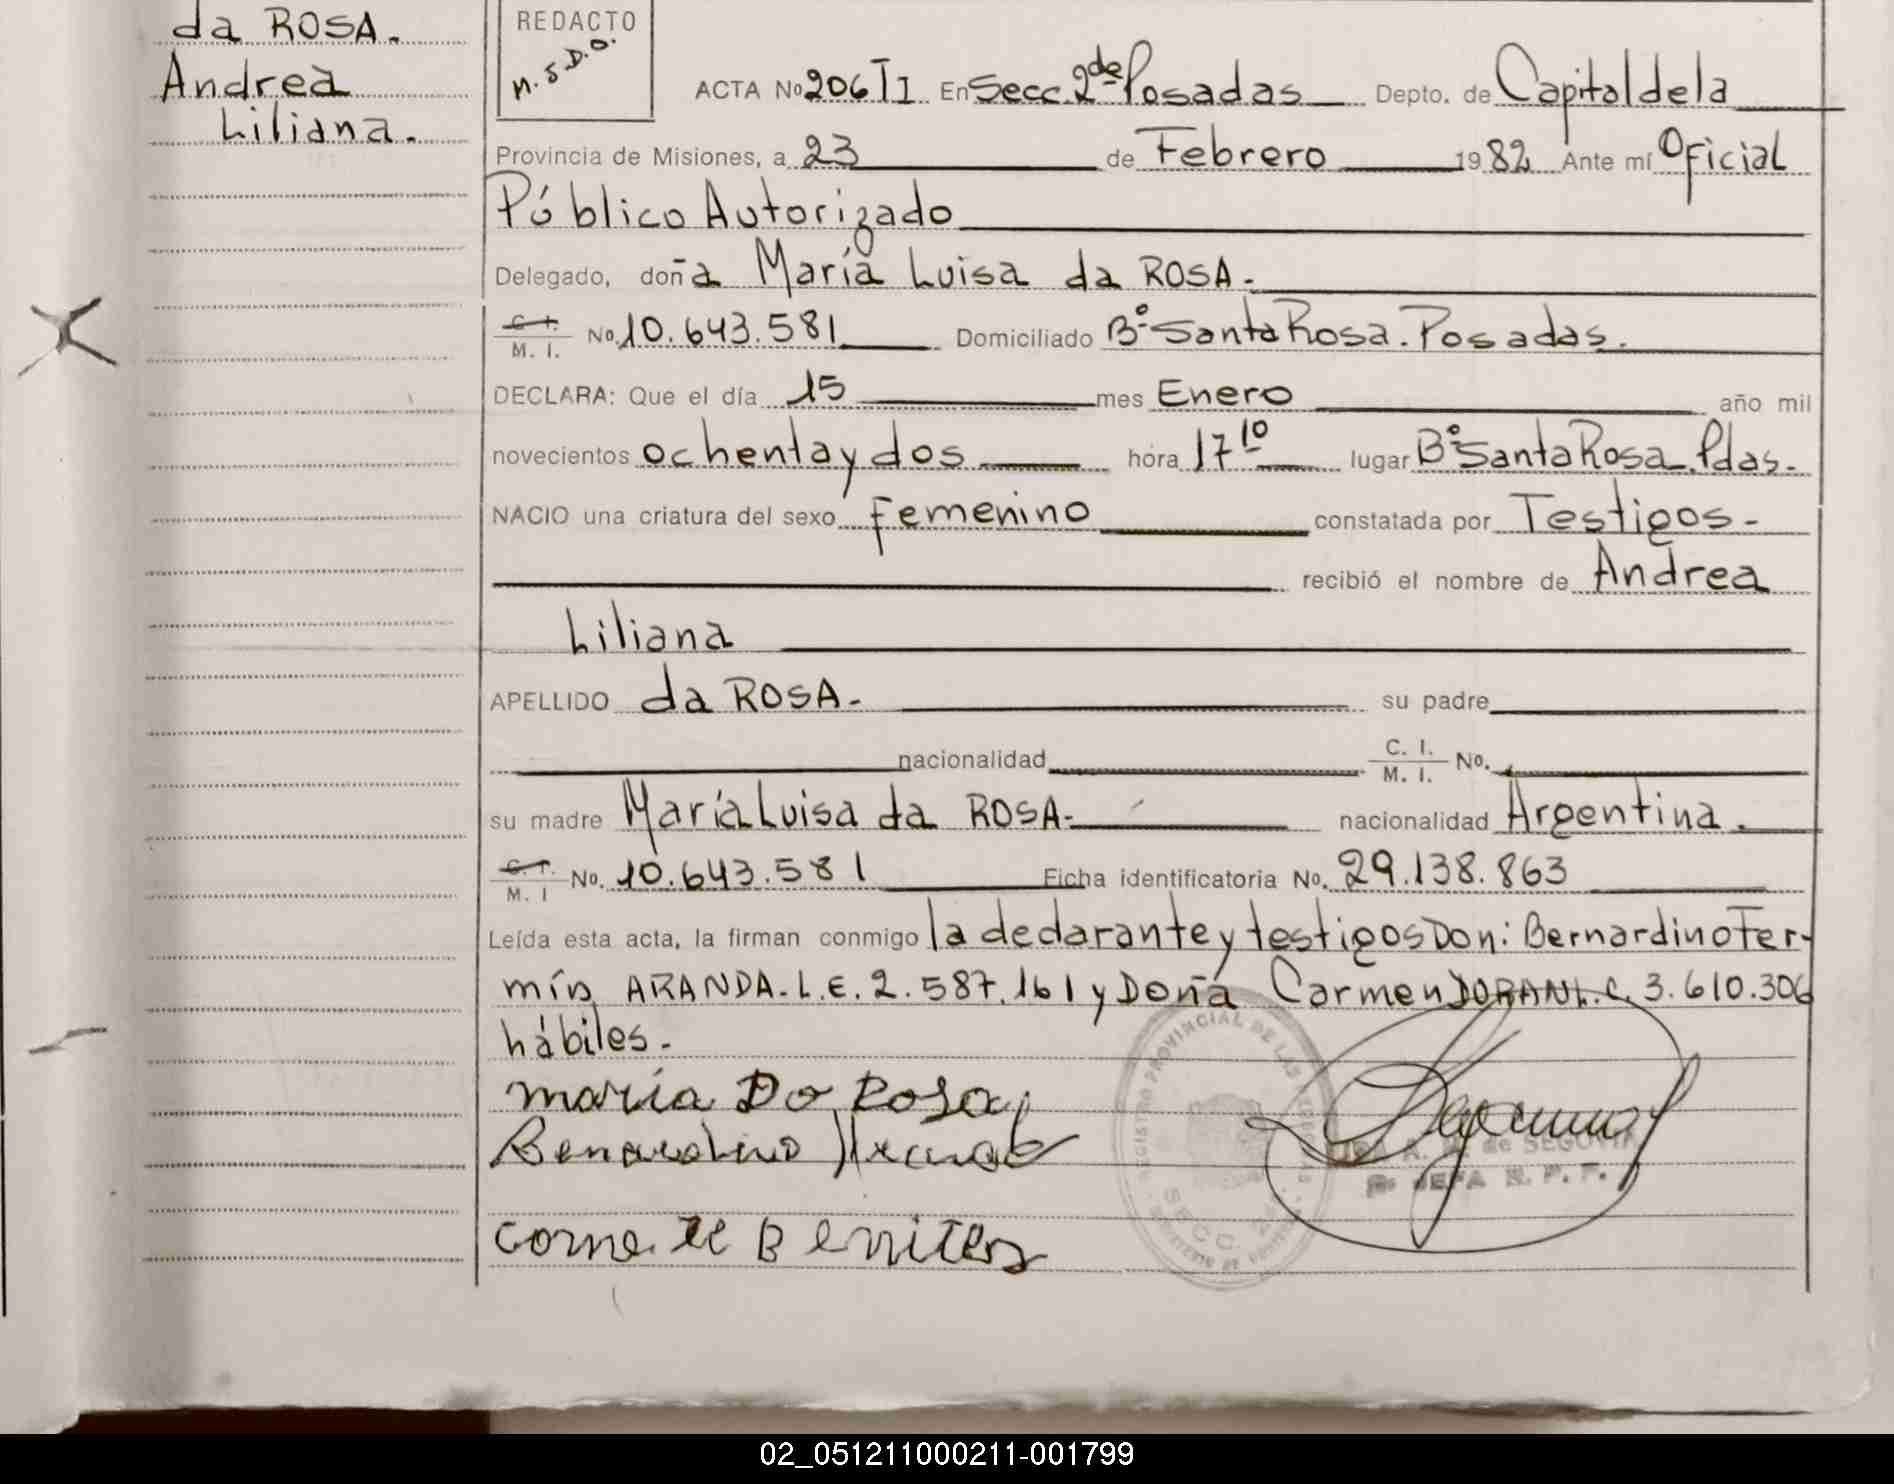 da ROSA.
Andrea
Liliana.
REDACTO
M.S.D.O.
ACTA No 206 TI En Secc. 2de Posadas Depto. de Capital de la
Provincia de Misiones, a 23 de Febrero 1982 Ante mí Oficial
Público Autorizado
Delegado, doña María Luisa da ROSA.
C. I. / M. I. No. 10.643.581 Domiciliado Bº Santa Rosa. Posadas.
DECLARA: Que el día 15 mes Enero año mil
novecientos ochenta y dos hora 17 10 lugar Bº Santa Rosa. Pdas.
NACIO una criatura del sexo femenino constatada por Testigos-
recibió el nombre de Andrea
Liliana
APELLIDO da ROSA.- su padre
nacionalidad C. I. / M. I. No.
su madre María Luisa da ROSA- nacionalidad Argentina.
C. I. / M. I No. 10.643.581 Ficha identificatoria No. 29.138.863
Leída esta acta, la firman conmigo la declarante y testigos Don: Bernardino Fer-
mín ARANDA. L.E. 2.587.161 y Doña Carmen DORAN L.C. 3.610.306
hábiles.
maria Da Rosa
REGISTRO PROVINCIAL DE LAS
SECC. 2
de SEGOVIA
JEFA R. P. P.
Benites
02_051211000211-001799